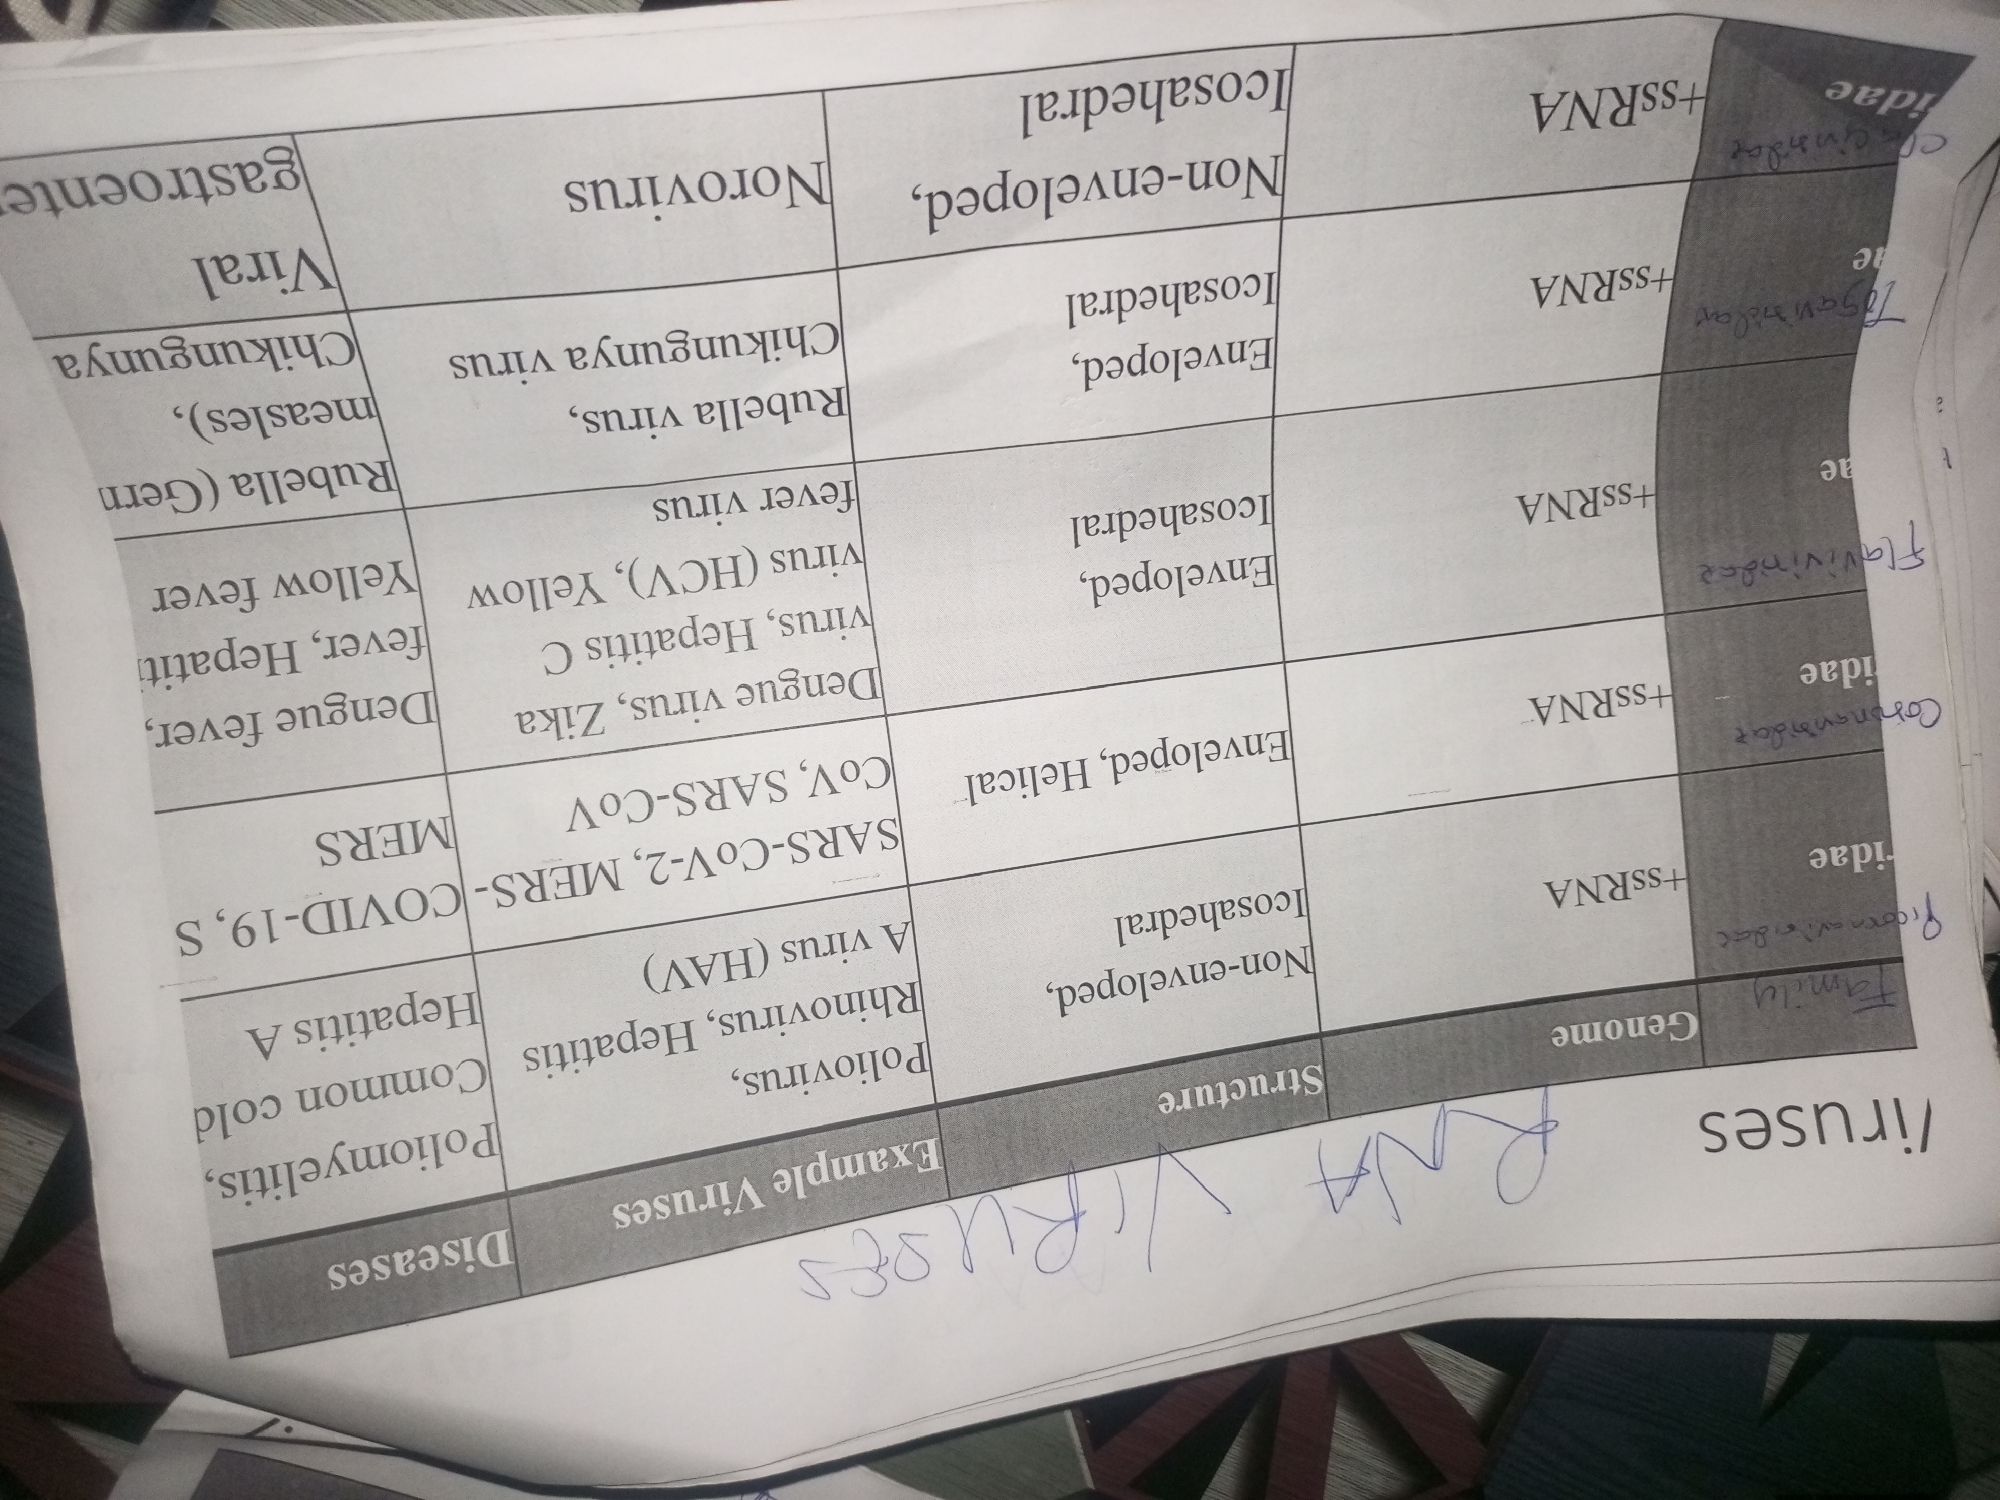 /iruses
RNA VIRUSES
Family
Genome
Structure
Example Viruses
Diseases
Picornaviridae
ridae
+ssRNA
Non-enveloped,
Icosahedral
Poliovirus,
Rhinovirus, Hepatitis
A virus (HAV)
Poliomyelitis,
Common cold
Hepatitis A
Coronaviridae
idae
+ssRNA
Enveloped, Helical
SARS-CoV-2, MERS-
CoV, SARS-CoV
COVID-19, S
MERS
Flaviviridae
ae
+ssRNA
Enveloped,
Icosahedral
Dengue virus, Zika
virus, Hepatitis C
virus (HCV), Yellow
fever virus
Dengue fever,
fever, Hepatiti
Yellow fever
Togaviridae
ae
+ssRNA
Enveloped,
Icosahedral
Rubella virus,
Chikungunya virus
Rubella (Germ
measles),
Chikungunya
idae
+ssRNA
Non-enveloped,
Icosahedral
Norovirus
Viral
gastroente